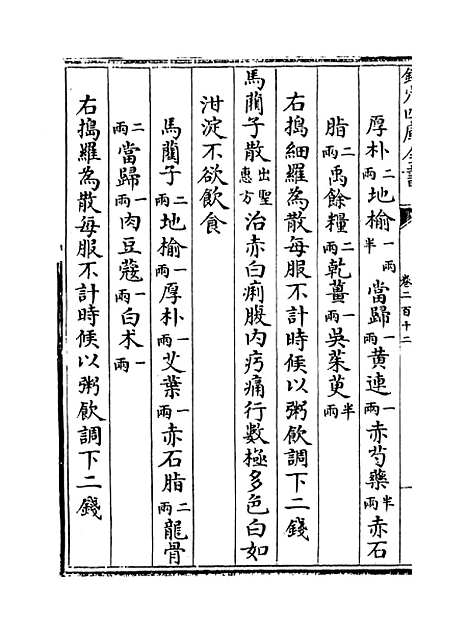 欽定四庫全書
卷二百十二
厚朴二兩地榆一兩半當歸一兩黄連一兩赤芍藥半兩赤石
脂二兩禹餘糧二兩乾薑一兩吳茱萸半兩
右搗細羅為散每服不計時候以粥飲調下二錢
馬藺子散出聖惠方治赤白痢腹内疞痛行數極多色白如
泔淀不欲飲食
馬藺子二兩地榆一兩厚朴一兩艾葉一兩赤石脂二兩龍骨
二兩當歸一兩肉豆蔻一兩白术一兩
右搗羅為散每服不計時候以粥飲調下二錢